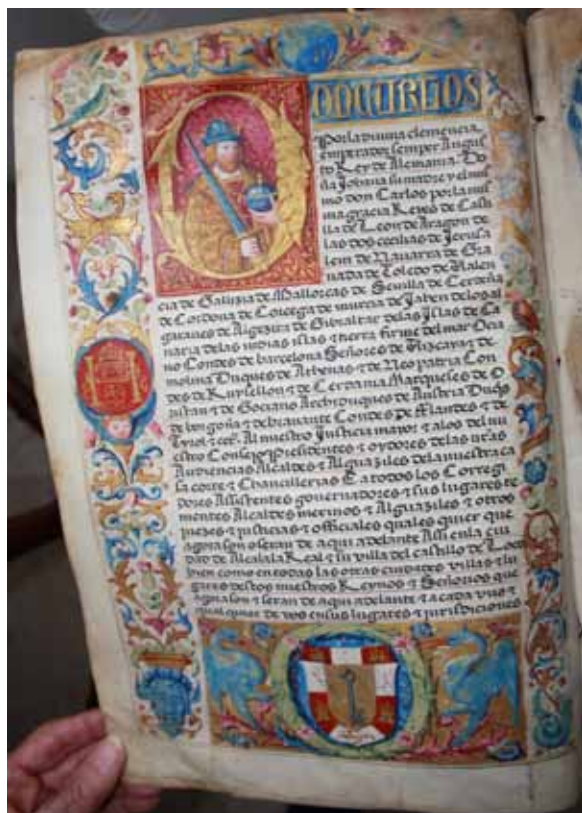 ON CARLOS
Por la divina clemencia
emperador semper Augus
to Rey de Alemania. Do
ña Johana su madre y el mis
mo don Carlos por la mis
ma gracia Reyes de Casti
lla de Leon de Aragon de
las dos cecilias de Jerusa
lem de Navarra de Gra
nada de Toledo de Valen
cia de Gallizia de Mallorcas de Sevilla de Cerdeña
de Cordova de Corcega de murcia de Jahen de los al
garaves de Algezira de Gibraltar de las Islas de Ca
naria de las indias islas & tierra firme del mar Ocia
no Condes de barcelona Señores de Vizcaya & de
molina Duques de Athenas & de Neopatria Con
des de Ruysellon & de Cerdania Marqueses de O
ristan & de Gociano Archiduques de Austria Duqs
de borgoña & de bravante Condes de fflandes & de
Tirol & cet. Al nuestro Justicia mayor & a los del nu
estro Consejo Presidentes & oydores de las nras
Audiencias Alcaldes & Alguaziles de la nuestra ca
sa corte & Chancillerias E a todos los Corregi
dores Assistentes governadores & sus lugares te
nientes Alcaldes merinos & Alguaziles & otros
juezes & justicias & officiales quales quier que
agora son o seran de aqui adelante Assi en la ciu
dad de Alcala la Real & su villa del castillo de
bien como en todas las otras ciudades villas & lu
gares destos nuestros Reynos & Señorios que
agora son & seran de aqui adelante & a cada uno &
qualquier de vos en sus lugares & jurisdiciones